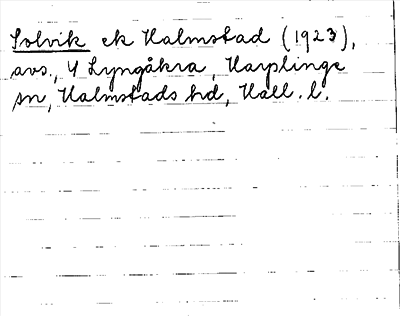 Solvik ek Halmstad (1923),
avs., 4 Lyngåkra, Harplinge
sn, Halmstads hd, Hall. l.